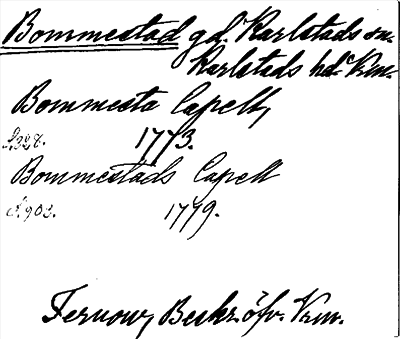 Bommestad gd. Karlstads sn.
Karlstads hd. Vrm.
Bommesta Capell,
s. 328. 1773.
Bommestads Capell
s. 903. 1779.
Fernow, Beskr. öfv. Vrm.